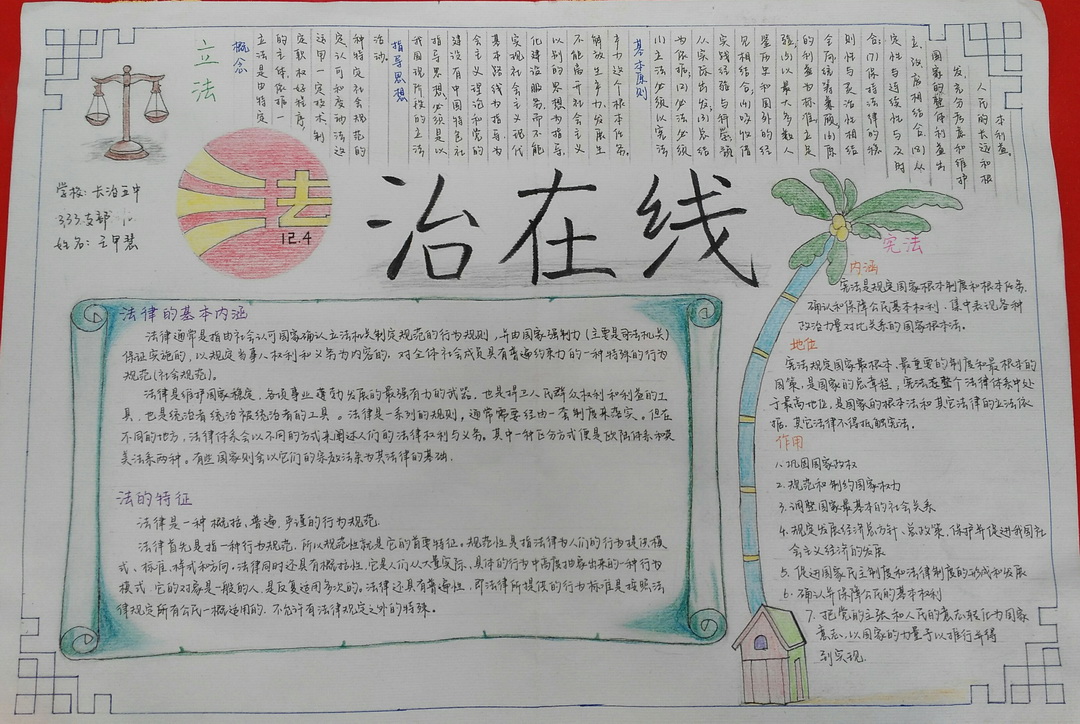 立法
概念
立法是由特定
的主体,依据一
定职权和程序,
运用一定技术制
定、认可和变动法这
种特定社会规范的
活动。
指导思想
我国现阶段的立法
指导思想必须是以
建设有中国特色社
会主义理论和党的
基本路线为指导,为
实现社会主义现代
化建设服务,而不能
以别的思想为指导,
不能离开社会主义
解放生产力,发展生
产力这个根本任务。
基本原则
(1)立法必须以宪法
为依据;(2)立法必须
从实际出发;(3)总结
实践经验与科学预
见相结合;(4)吸收借
鉴历史和国外的经
验;(5)以最大多数人
的利益为标准,立足
全局,统筹兼顾;(6)原
则性与灵活性相结
合;(7)保持法律的稳
定性与连续性与及时
立、改、废相结合;(8)从
国家的整体利益出
发,充分考虑和维护
人民的长远和根
本利益。
学校:长治五中
333支部
姓名:王甲慧
法
12.4
治在线
法律的基本内涵
法律通常是指由社会认可国家确认立法机关制定规范的行为规则,并由国家强制力(主要是司法机关)
保证实施的,以规定当事人权利和义务为内容的,对全体社会成员具有普遍约束力的一种特殊的行为
规范(社会规范)。
法律是维护国家稳定、各项事业蓬勃发展的最强有力的武器,也是捍卫人民群众权利和利益的工
具,也是统治者统治被统治者的工具。法律是一系列的规则,通常需要经由一套制度来落实。但在
不同的地方,法律体系会以不同的方式来阐述人们的法律权利与义务。其中一种区分方式便是欧陆体系和英
美法系两种。有些国家则会以它们的宗教法条为其法律的基础。
法的特征
法律是一种概括、普遍、严谨的行为规范
法律首先是指一种行为规范,所以规范性就是它的首要特征。规范性是指法律为人们的行为提供模
式、标准、样式和方向。法律同时还具有概括性,它是人们从大量实际、具体的行为中高度抽象出来的一种行为
模式,它的对象是一般的人,是反复适用多次的。法律还具有普遍性,即法律所提供的行为标准是按照法
律规定所有公民一概适用的,不允许有法律规定之外的特殊。
宪法
内涵
宪法是规定国家根本制度和根本任务,
确认和保障公民基本权利,集中表现各种
政治力量对比关系的国家根本法。
地位
宪法规定国家最根本、最重要的制度和最根本的
国策,是国家的总章程;宪法在整个法律体系中处
于最高地位,是国家的根本法和其它法律的立法依
据,其它法律不得抵触宪法。
作用
1、巩固国家政权
2、规范和制约国家权力
3、调整国家最基本的社会关系
4、规定发展经济总方针、总政策,保护并促进我国社
会主义经济的发展
5、促进国家民主制度和法律制度的形成和发展
6、确认并保障公民的基本权利
7、把党的主张和人民的意志转化为国家
意志,以国家的力量予以推行并得
到实现。